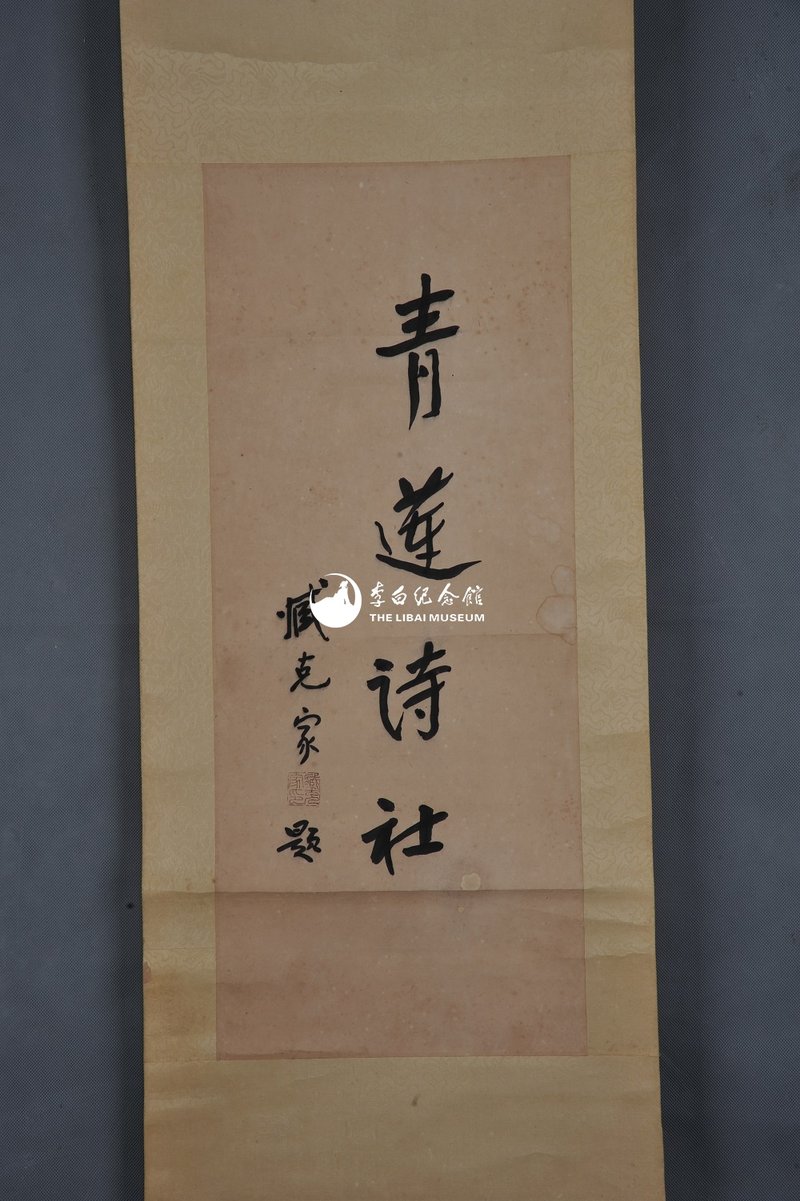 青莲诗社
臧克家
题
李白纪念馆
THE LIBAI MUSEUM